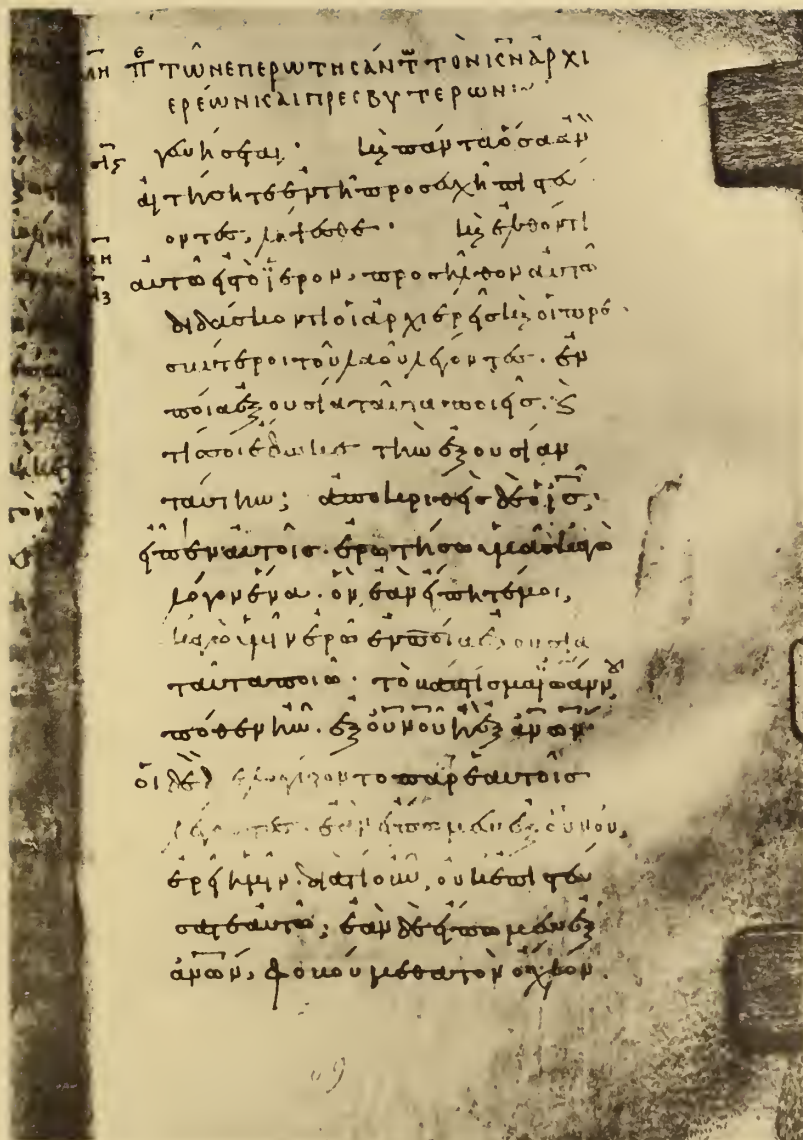 μη πε τῶν ἐπερωτησάντ τὸν ἰν ἀρχι
ερέων καὶ πρεσβυτέρων:~
σις γενήσεται· καὶ πάντα ὅσα ἂν
αἰτήσητε ἐν τῇ προσευχῇ πιστεύ
οντες, λήψεσθε· καὶ ἐλθόντι
μη αὐτῷ εἰς τὸ ἱερὸν, προσῆλθον αὐτῷ
διδάσκοντι οἱ ἀρχιερεῖς καὶ οἱ πρε
σβύτεροι τοῦ λαοῦ λέγοντες· ἐν
ποίᾳ ἐξουσίᾳ ταῦτα ποιεῖς· καὶ
τίς σοι ἔδωκε τὴν ἐξουσίαν
ταύτην; ἀποκριθεὶς δὲ ὁ ἰς,
εἶπεν αὐτοῖς· ἐρωτήσω ὑμᾶς κἀγὼ
λόγον ἕνα· ὃν ἐὰν εἴπητέ μοι,
κἀγὼ ὑμῖν ἐρῶ ἐν ποίᾳ ἐξουσίᾳ
ταῦτα ποιῶ· τὸ βάπτισμα ἰωάνν
πόθεν ἦν· ἐξ οὐνου ἢ ἐξ ἀνων
οἱ δὲ διελογίζοντο παρ' ἑαυτοῖς
λέγοντες· ἐὰν εἴπωμεν ἐξ οὐνου,
ἐρεῖ ἡμῖν· διατί οὖν, οὐκ ἐπιστεύ
σατε αὐτῷ; ἐὰν δὲ εἴπωμεν ἐξ
ἀνων, φοβούμεθα τὸν ὄχλον.
69